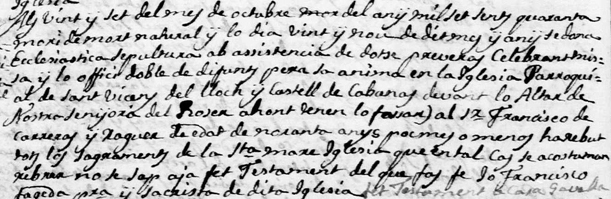 Iglesia
Als vint y set del mes de octubre mor del any mil set sents quaranta
mori de mort natural y lo dia vint y nou de dit mes y any se dona
Ecclesiastica sepultura ab assistencia de dotse preveras Celebrant mis-
sa y lo offici doble de difunts pera sa anima en la Iglesia Parroqui-
al de sant Vicens del lloch y Castell de Cabanas devant lo Altar de
Nostra senyora del Roser ahont tenen lo fossar) al Sr. Francisco de
Carreras y Raquer de edat de noranta anys poc mes o menos ha rebut
tots los Sagraments de la Sta mare Iglesia que en tal Cas se acostuman
rebrer no se sap aja fet Testament del que fas fe Jo Francisco
Fageda pra y sacrista de dita Iglesia fet Testament a Casa